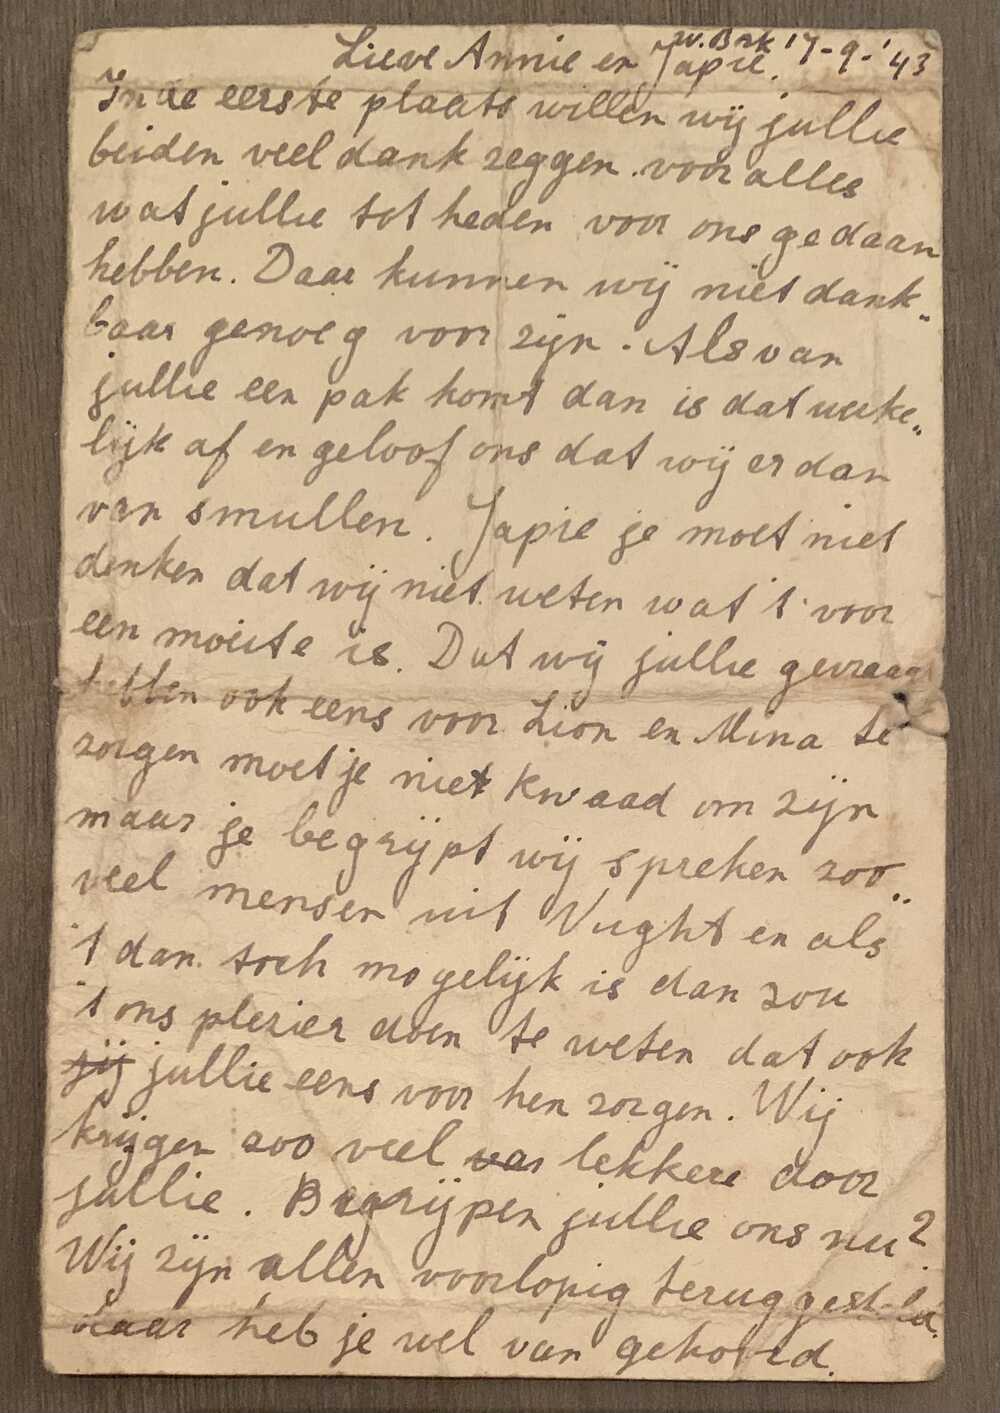 W. Bak 17-9-'43
Lieve Annie en Japie,
In de eerste plaats willen wij jullie
beiden veel dank zeggen voor alles
wat jullie tot heden voor ons gedaan
hebben. Daar kunnen wij niet dank„
baar genoeg voor zijn. Als van
jullie een pak komt dan is dat werke„
lijk af en geloof ons dat wij er dan
van smullen. Japie je moet niet
denken dat wij niet weten wat 't voor
een moeite is. Dat wij jullie gevraagd
hebben ook eens voor Lion en Mina te
zorgen moet je niet kwaad om zijn
maar je begrijpt wij spreken zoo„
veel mensen uit Vught en als
't dan toch mogelijk is dan zou
't ons plezier doen te weten dat ook
zij jullie eens voor hen zorgen. Wij
krijgen zoo veel van lekkere door
jullie. Begrijpen jullie ons nu?
Wij zijn allen voorlopig teruggesteld.
daar heb je wel van gehoord.